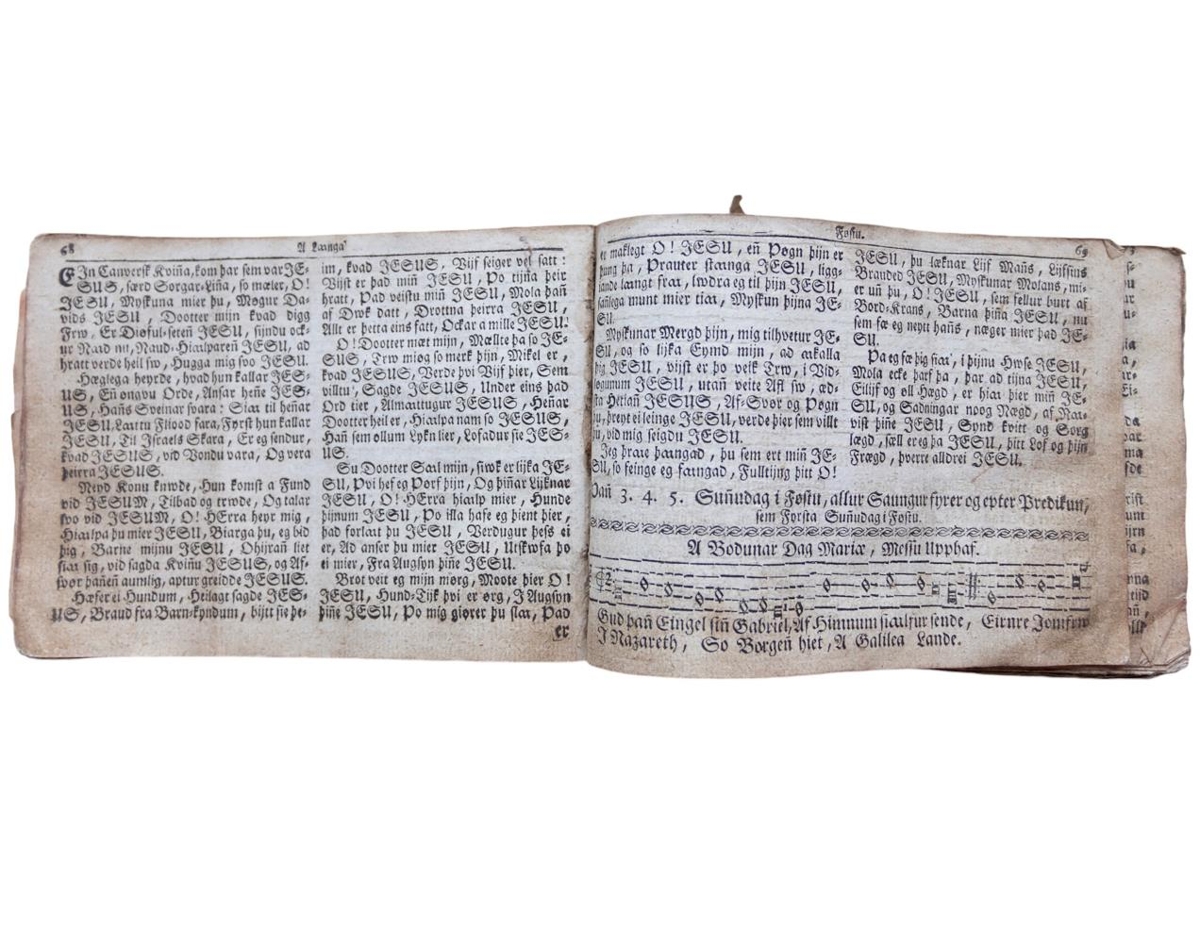 68
A Langa
EJn Canversk Kviña, kom þar sem var JE-
SUS, særd Sorgar-Liña, so mæler, O!
JESU, Myskuna mier þu, Møgur Da-
vids JESU, Dootter mijn kvad digg
Frw, Er Diøful-seteñ JESU, siindu ock-
ur Naud nu, Naud-Hialpareñ JESU, ad
hratt verde heil sw, Hugga mig svo JESU.
Hæglega heyrde, hvad hun kallar JES-
US, Eñ ongvu Orde, Ansar heñe JES-
US, Hañs Sveinar svara: Siat til heñar
JESU, Lattu Fliood fara, Fyrst hun kallar
JESU, Til Israels Skara, Er eg sendur,
kvad JESUS, vid Vondu vara, Og vera
þeirra JESUS.
Neyd Konu knwde, Hun komst a Fund
vid JESUM, Tilbad og trwde, Og talar
svo vid JESUM, O! HErra heyr mig,
Hialpa þu mier JESU, Biarga þu, eg bid
þig, Barne mijnu JESU, Ohijrañ liet
siat sig, vid sagda Kviñu JESUS, og Af-
svør hañeñ aumlig, aptur greidde JESUS.
Hæfer ei Hundum, Heilagt sagde JES-
US, Braud fra Barn-kyndum, bijtt sie þe-
im, kvad JESUS, Vijf seiger vel satt:
Vijst er þad miñ JESU, Po tijña þeir
þratt, Pad veistu miñ JESU, Mola þañ
af Dwk datt, Drottna þeirra JESU,
Allt er þetta eins fatt, Ockar a mille JESU.
O! Dootter mæt mijn, Mællte þa so JE-
SUS, Trw miøg so merk þijn, Mikel er,
kvad JESUS, Verde þvi Vijf þier, Sem
villtu, Sagde JESUS, Under eins þad
Ord tier, Almattugur JESUS, Heñar
Dootter heil er, Hialpa nam so JESUS,
Hañ sem ollum Lykn lier, Lofadur sie JES-
US.
Su Dootter Saal mijn, siwk er lijka JE-
SU, Pvi hef eg Porf þijn, Og þiñar Lijknar
JESU, O! HErra hialp mier, Hunde
þijnum JESU, Po illa hafe eg þient þier,
þad forlatt þu JESU, Verdugur þess ei
er, Ad anser þu mier JESU, Utskwfa þo
ei mier, Fra Augsyn þiñe JESU.
Brot veit eg mijn mørg, Moote þier O!
JESU, Hund-Tijk þvi er ørg, J Augsyn
þiñe JESU, Po mig giører þu slat, Pad
er
Fostu.
69
er maklegt O! JESU, eñ Pøgn þijn er
þung þa, Prauter stranga JESU, ligg-
lande langt fraa, lwdra eg til þijn JESU,
munt mier tiaa, Myskun þijna JE-
SU.
Myskunar Mergd þijn, mig tilhvetur JE-
SU, og so lijka Eymd mijn, ad aakalla
þig JESU, vijst er þo veik Trw, i Vid-
JESU, utañ veite Afl sw, æd-
sta Hetiañ JESU, Af-Svør og Pøgn
þu, þreyt ei leinge JESU, verde þier sem villt
þu, vid mig seigdu JESU.
Jeg þraae þarngad, þu sem ert miñ JE-
SU, so feinge eg fangad, Fulltijng þitt O!
JESU, þu læknar Lijf Mañs, Lijfsins
Brauded JESU, Myskunar Molans, mi-
er uñ þu, O! JESU, sem fellur burt af
Bord-Krans, Barna þiñna JESU, nu
sem fæ eg neytt hañs, næger mier þad JE-
SU.
Pa eg fæ þig siaa, i þijnu Hwse JESU,
Mola ecke þarf þa, þar ad tijna JESU,
Eilijf og oll Hægd, er hiaa þier miñ JE-
SU, og Sadningar noog Nægd, af Nar-
vist þiñe JESU, Synd kvitt og Sorg
lægd, sæll er eg þa JESU, þitt Lof og þijn
Frægd, þverre alldrei JESU.
Dañ 3. 4. 5. Suñudag i Fostu, allur Saungur fyrer og epter Predikun,
sem Fyrsta Suñudag i Fostu.
A Bodunar Dag Mariæ, Messu Upphaf.
Gud þañ Eingel siñ Gabriel, Af Himnum siaalfur sende, Eirnre Jomfrw
J Nazareth, So Borgeñ hiet, A Galilea Lande.